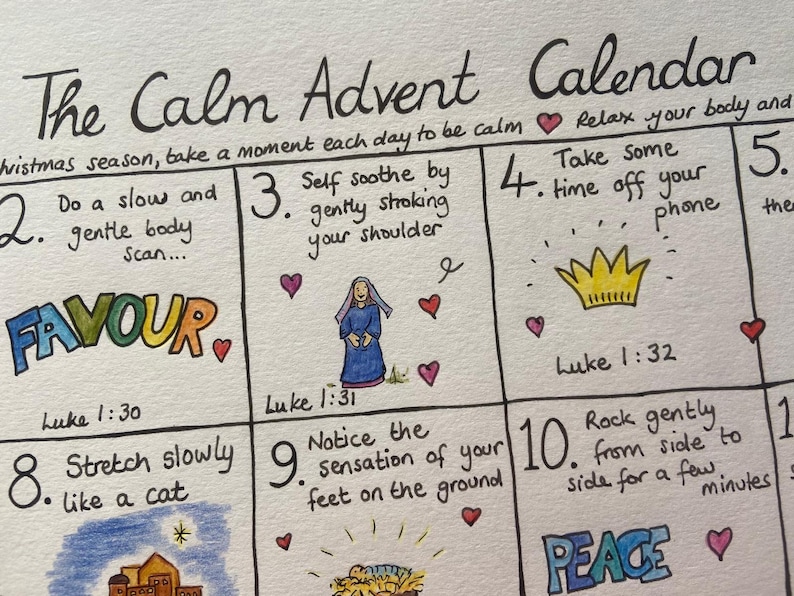 The Calm Advent Calendar
christmas season, take a moment each day to be calm ❤ Relax your body and
2. Do a slow and
gentle body
scan...
FAVOUR
Luke 1:30
3. Self soothe by
gently stroking
your shoulder
Luke 1:31
4. Take some
time off your
phone
Luke 1:32
5.
8. Stretch slowly
like a cat
9. Notice the
sensation of your
feet on the ground
10. Rock gently
from side to
side for a few
minutes
PEACE